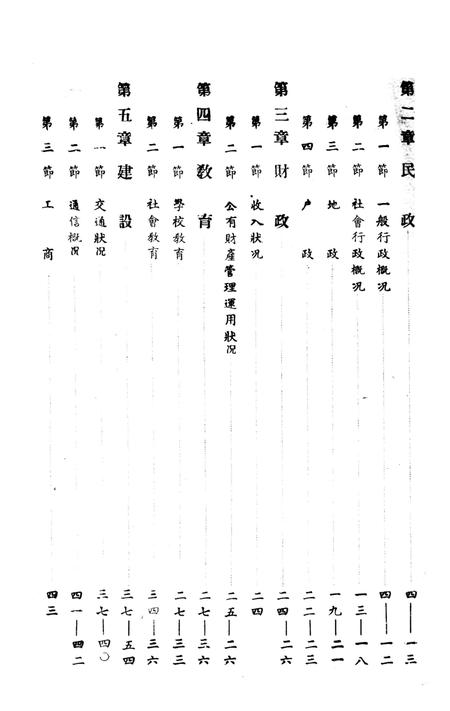 第二章 民政 四——一三
第一節 一般行政概況 四——一二
第二節 社會行政概況 一三——一八
第三節 地政 一九——二一
第四節 户政 二二——二三
第三章 財政 二四——二六
第一節 收入狀况 二四
第二節 公有財產管理運用狀况 二五——二六
第四章 教育 二七——三六
第一節 學校教育 二七——三三
第二節 社會教育 三四——三六
第五章 建設 三七——五四
第一節 交通狀况 三七——四〇
第二節 通信概况 四一——四二
第三節 工商 四三